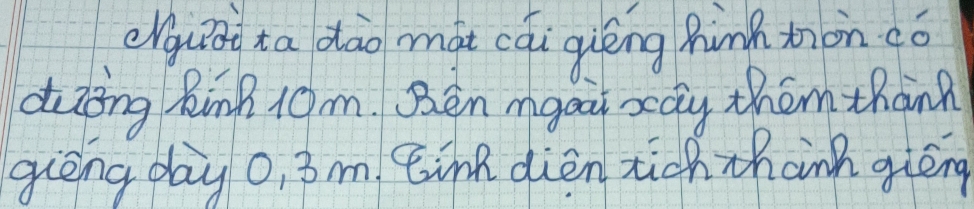 Người ta đào một cái giếng hình tròn có
đường kính 10 m. Bên ngoài xây thêm thành
giếng dày 0,3 m. Tính diện tích thành giếng